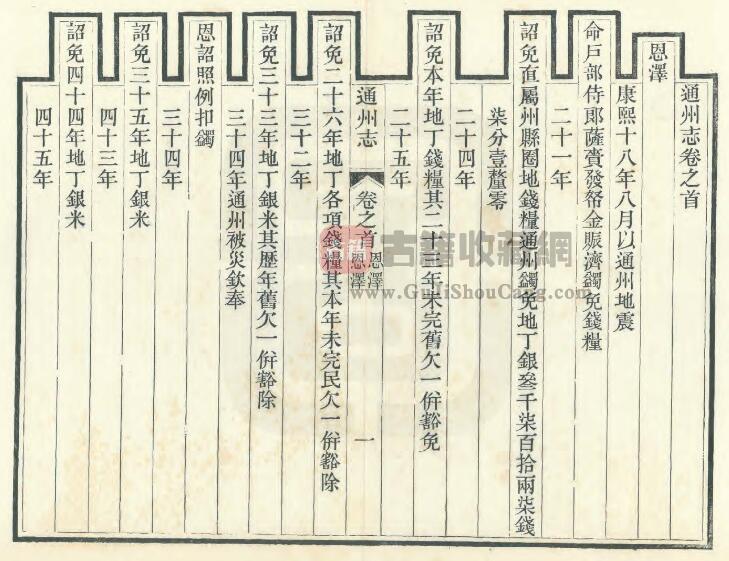 通州志卷之首
恩澤
康熙十八年八月以通州地震
命戸部侍郎薩賫發帑金賑濟蠲免錢糧
二十一年
詔免直屬州縣圈地錢糧通州蠲免地丁銀叄千柒百拾兩柒錢
柒分壹釐零
二十四年
詔免本年地丁錢糧其二十三年未完舊欠一倂豁免
二十五年
通州志 卷之首 恩澤 恩澤 一
詔免二十六年地丁各項錢糧其本年未完民欠一倂豁除
三十二年
詔免三十三年地丁銀米其歷年舊欠一倂豁除
三十四年通州被災欽奉
恩詔照例扣蠲
三十四年
詔免三十五年地丁銀米
四十三年
詔免四十四年地丁銀米
四十五年
古籍收藏網
www.GuJiShouCang.com